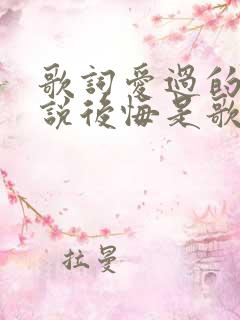 歌詞愛過的
說後悔是歌
拉曼